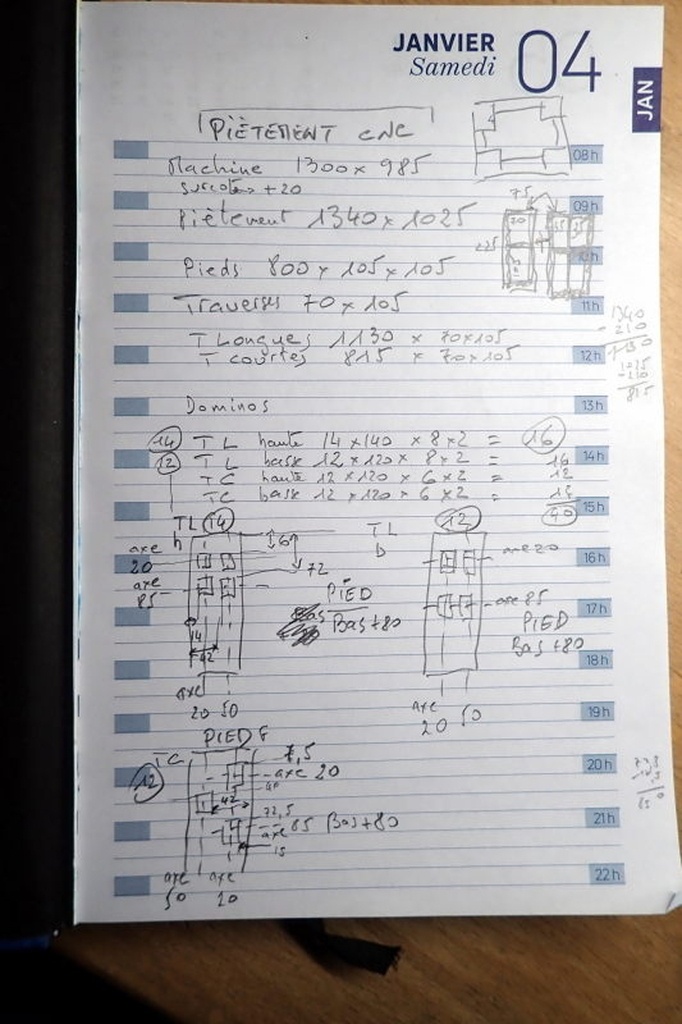 JANVIER
Samedi
04
JAN
PIÈTEMENT CNC
08h
Machine 1300 x 985
surcotes + 20
75
09h
Piètement 1340 x 1025
20
225
10h
Pieds 800 x 105 x 105
Traverses 70 x 105
11h
1340
- 210
1130
T Longues 1130 x 70x105
T courtes 815 x 70x105
12h
1025
- 210
815
Dominos
13h
14 TL haute 14x140 x 8x2 = 16
12 TL basse 12x120x 8x2 = 16
14h
TC haute 12x120 x 6x2 = 12
TC basse 12x120x 6x2 = 12
15h
40
TL 14
h
TL 12
b
axe
20
axe 20
16h
axe
85
72
PIED
Bas+80
axe 85
PIED
Bas+80
17h
14
42
18h
axe
20 50
axe
20 50
19h
PIED G
TC
12
7,5
axe 20
20h
42
72,5
axe 85 Bas+80
21h
15
axe
50
axe
20
22h